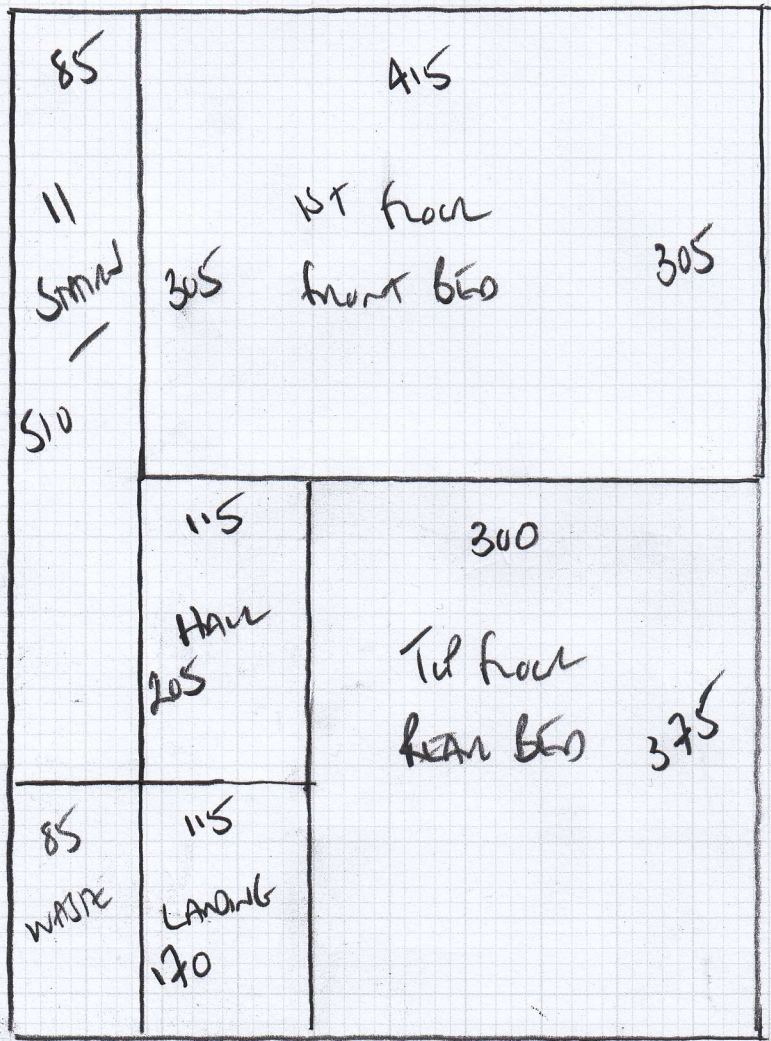 85
11
STAIRS
510
415
1ST floor
front BED
305
305
115
HALL
205
300
Top floor
REAR BED
375
85
WASTE
115
LANDING
170